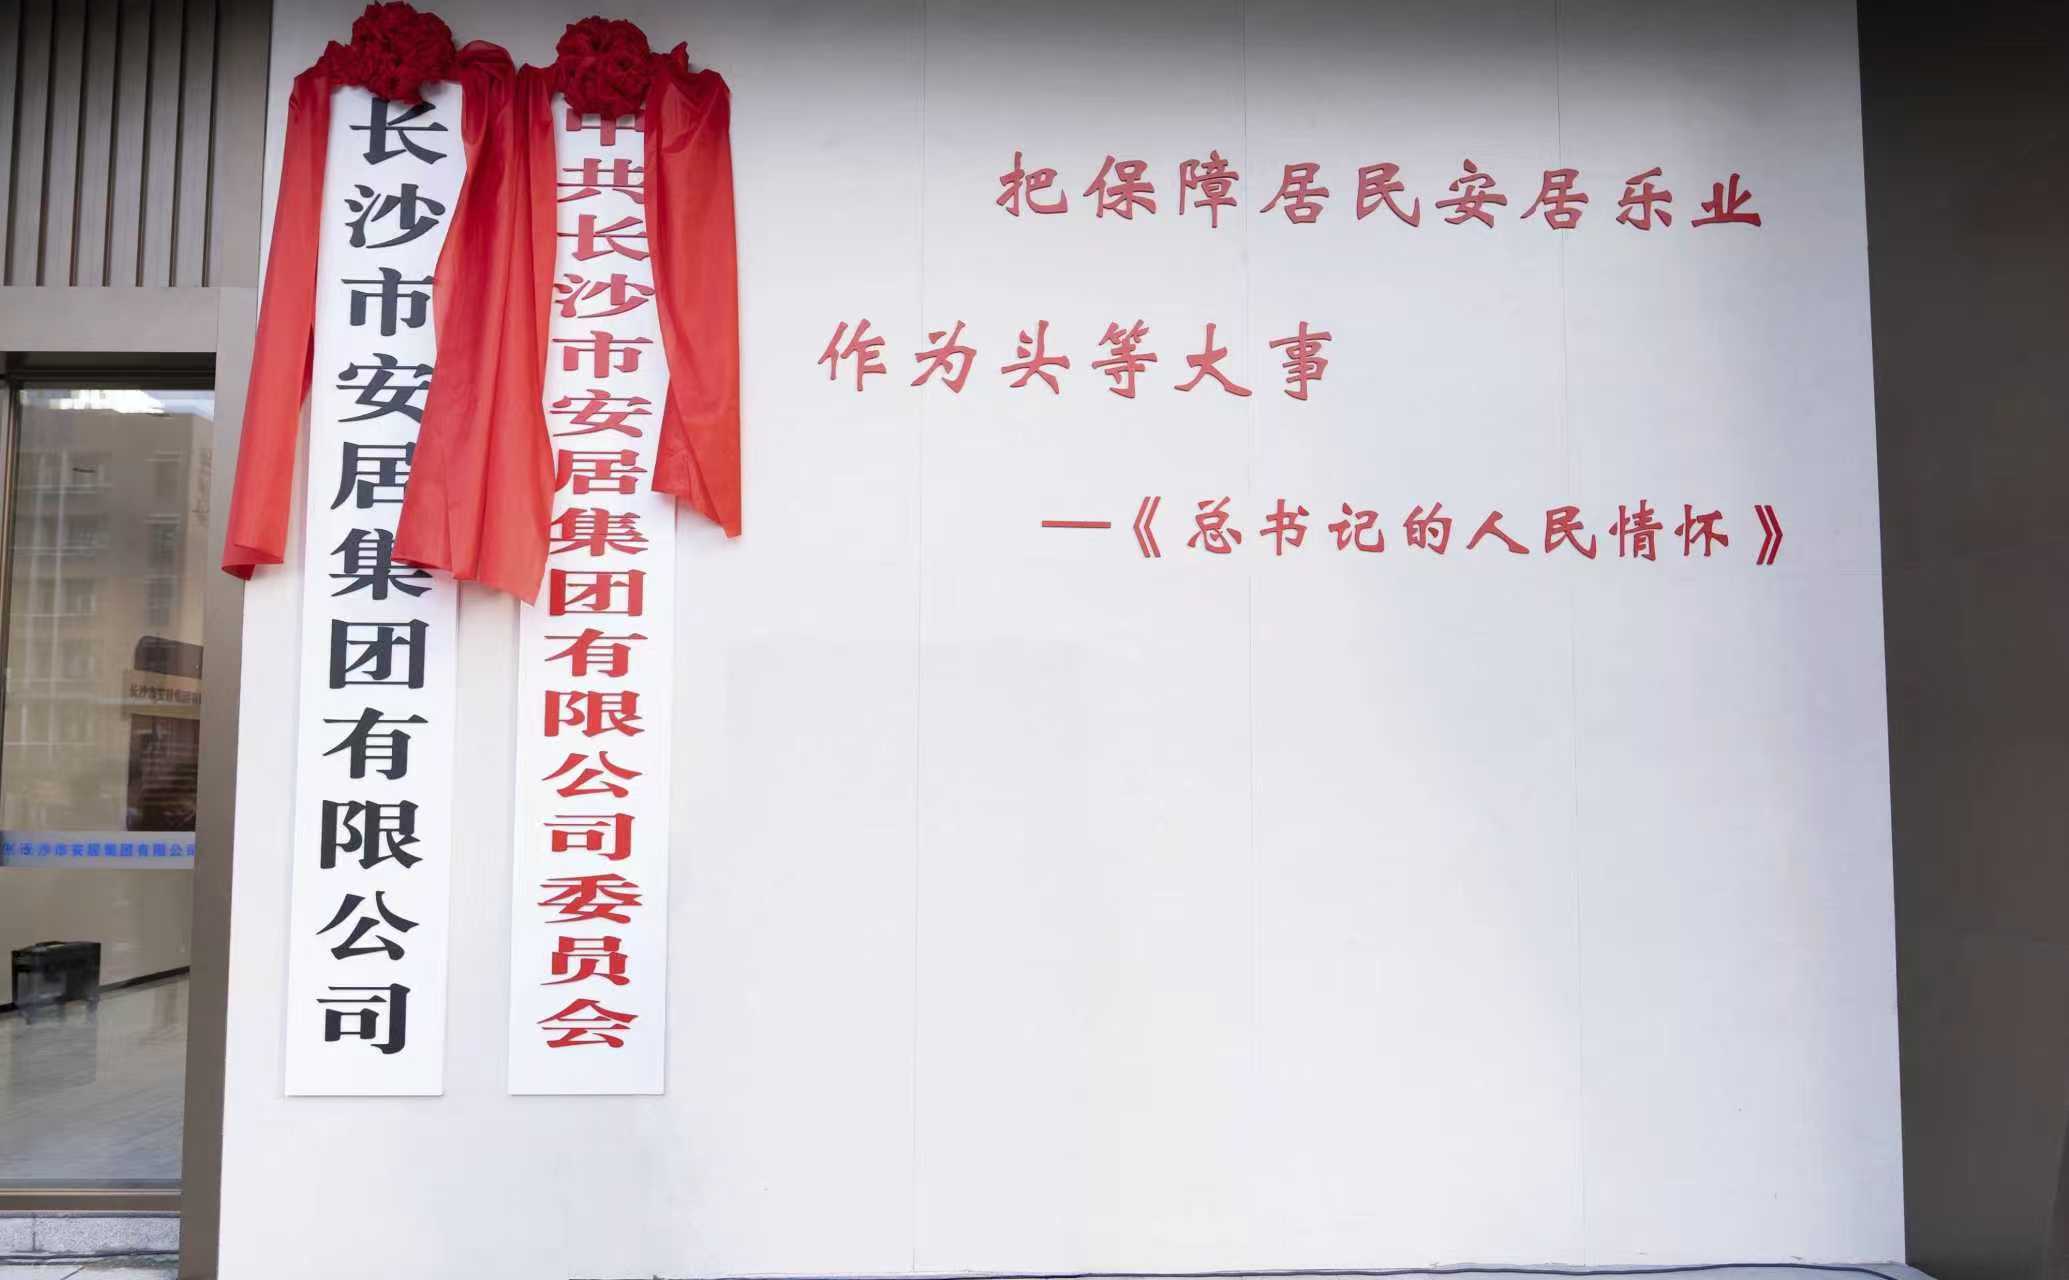 长沙市安居集团有限公司
中共长沙市安居集团有限公司委员会
把保障居民安居乐业
作为头等大事
—《总书记的人民情怀》
长沙市安居集团有限公司